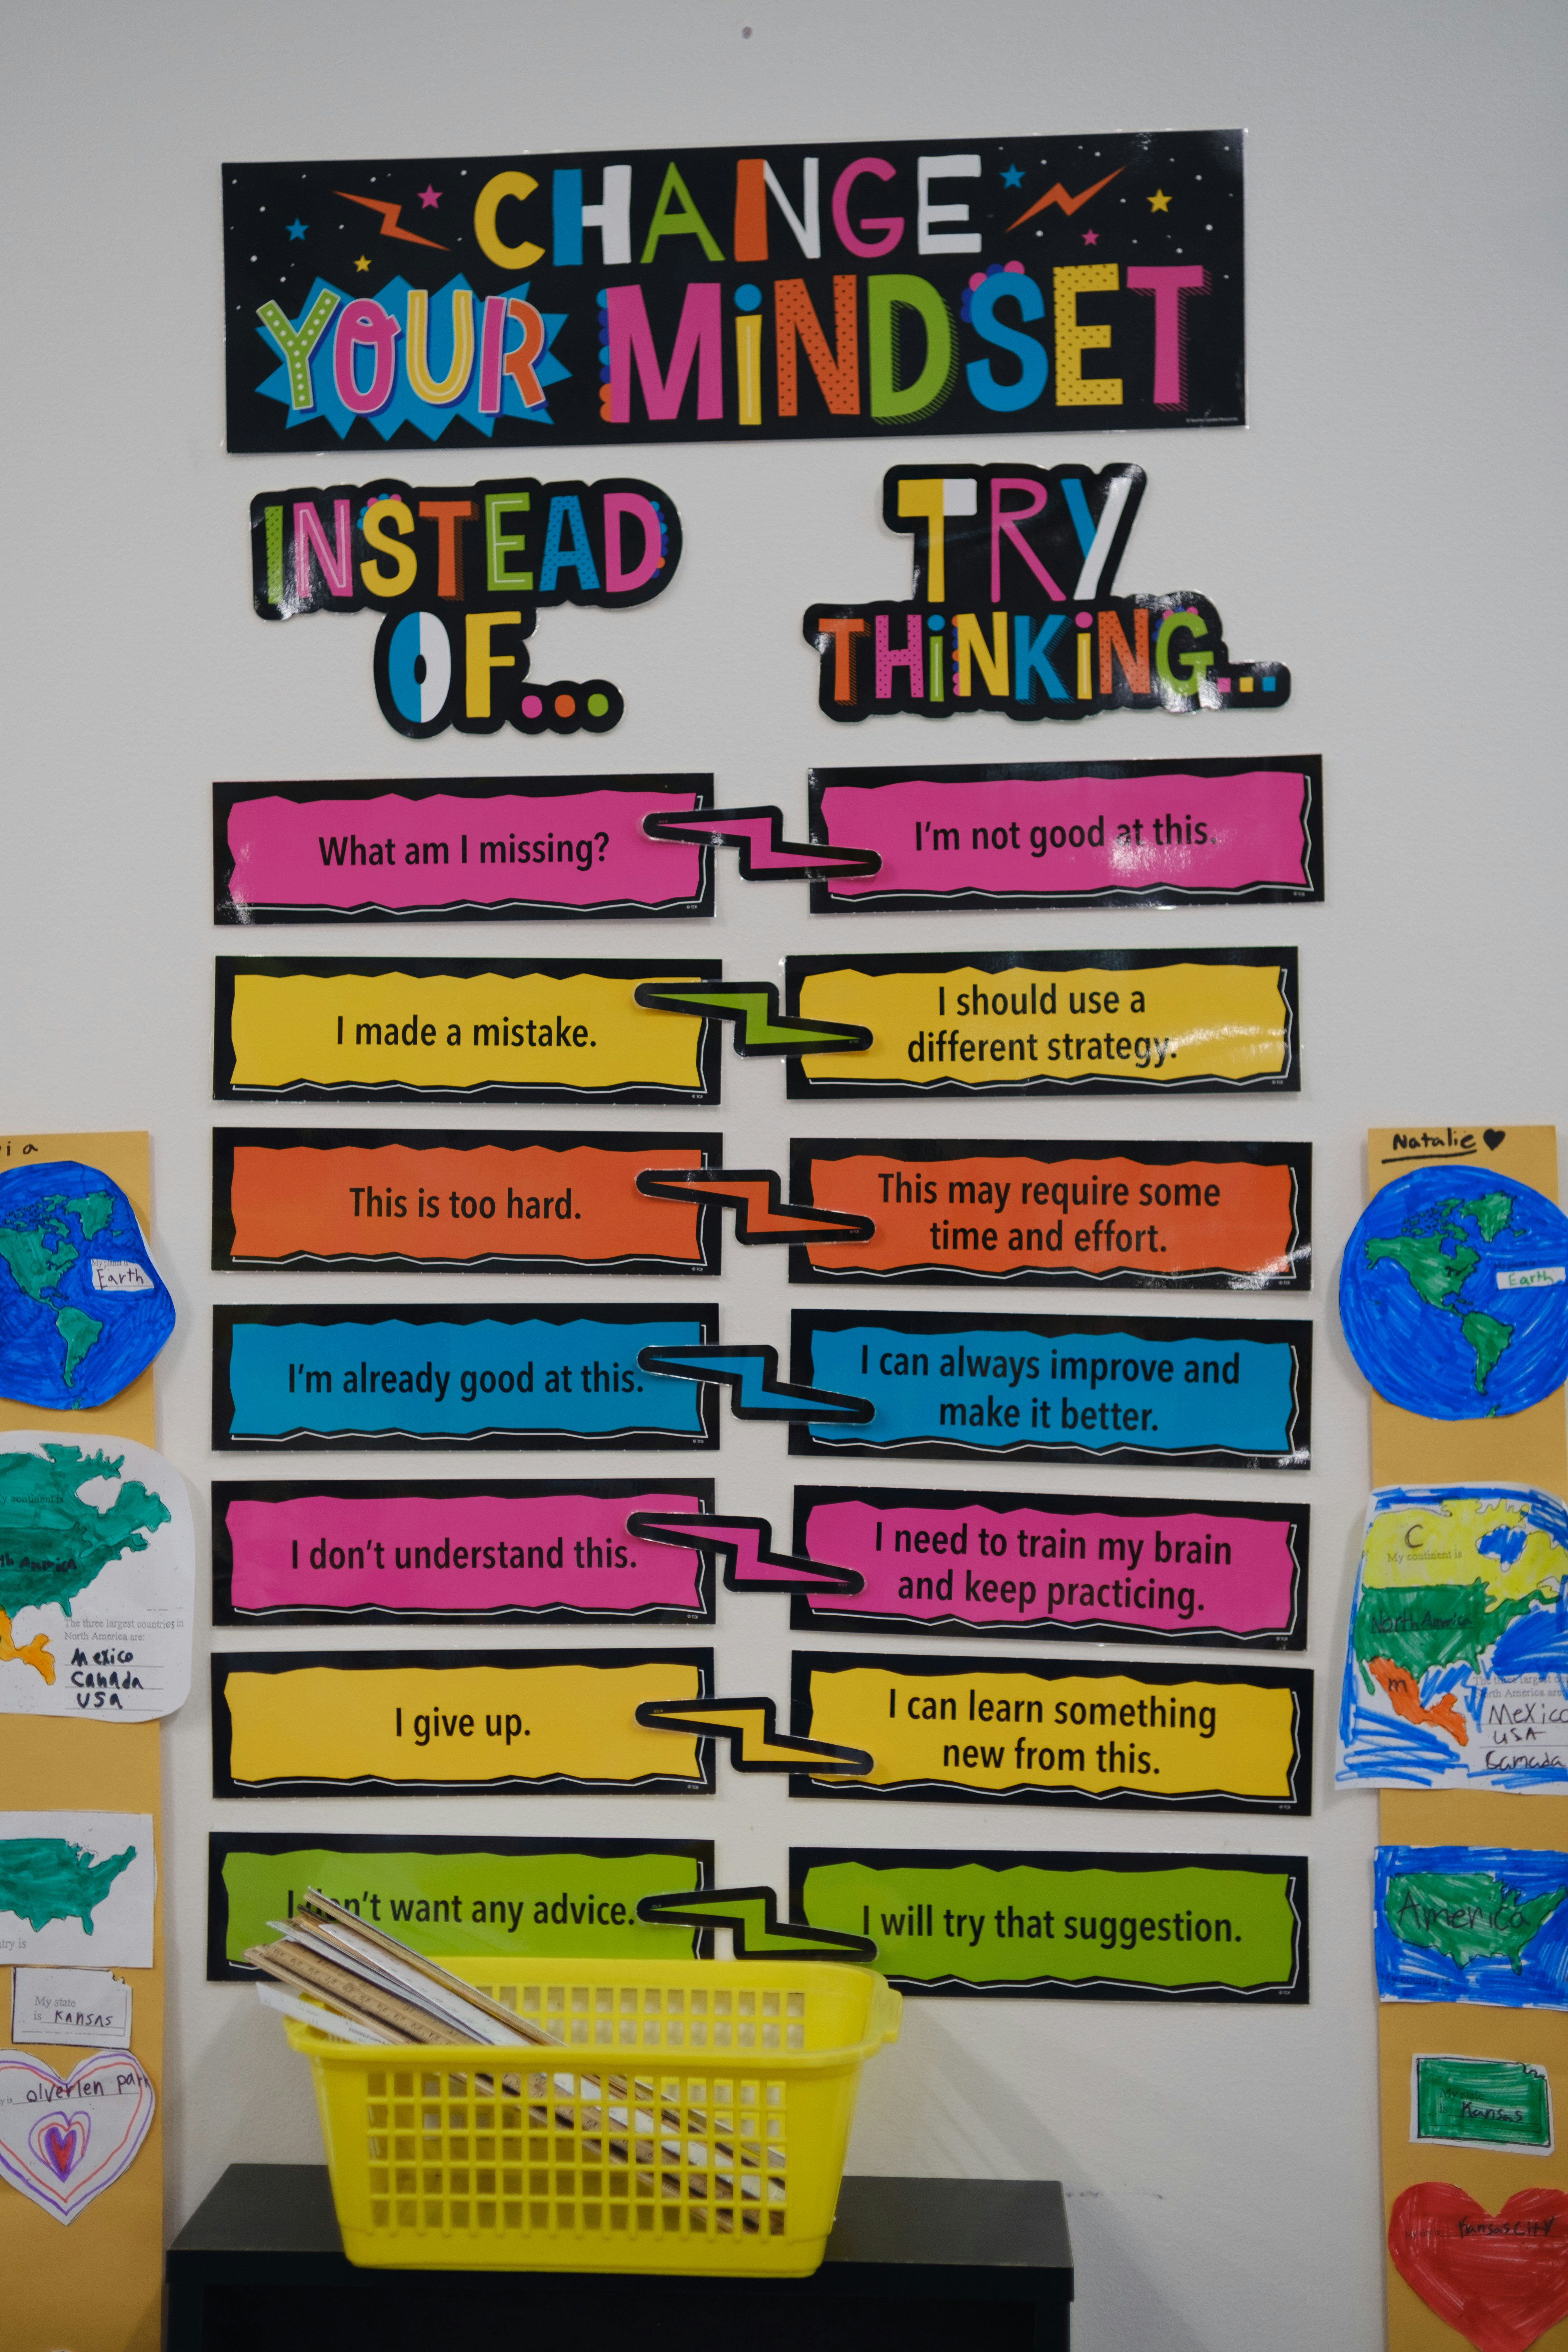 CHANGE
YOUR MiNDSET
INSTEAD
OF...
TRY
THiNKiNG...
What am I missing?
I'm not good at this.
I made a mistake.
I should use a
different strategy.
This is too hard.
This may require some
time and effort.
I'm already good at this.
I can always improve and
make it better.
I don't understand this.
I need to train my brain
and keep practicing.
I give up.
I can learn something
new from this.
I don't want any advice.
I will try that suggestion.
Earth
continent is
America
The three largest countries in
North America are:
Mexico
Canada
USA
My state
is Kansas
olverlen park
Natalie
Earth
C
My continent is
North America
m
North America are:
Mexico
USA
Camada
America
My state
is Kansas
Kansas City